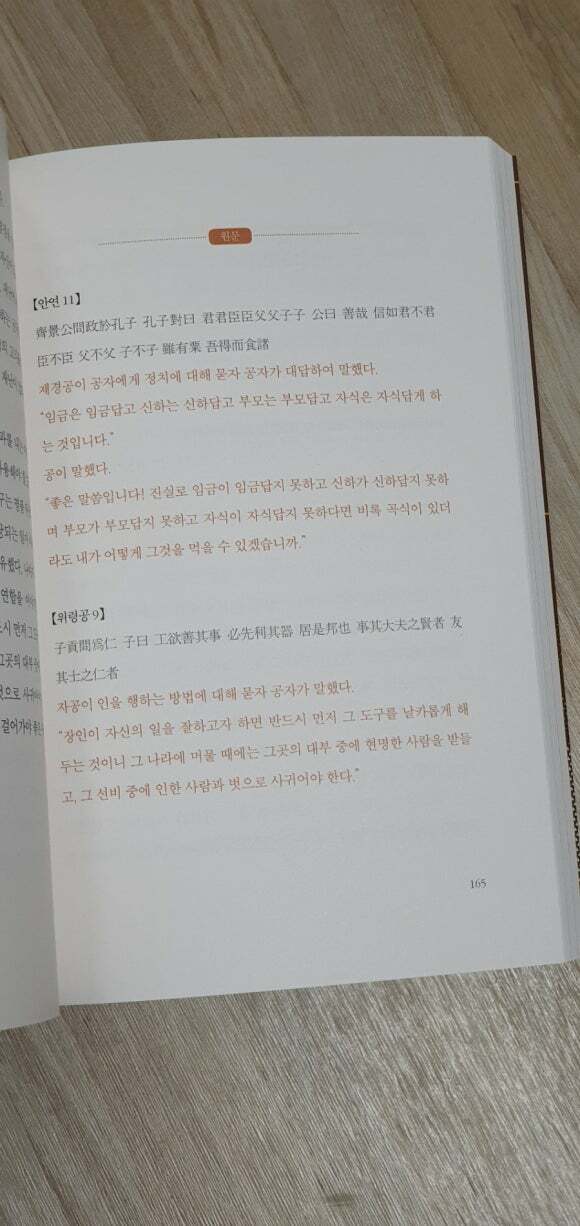 원문
【안연 11】
齊景公問政於孔子 孔子對曰 君君臣臣父父子子 公曰 善哉 信如君不君
臣不臣 父不父 子不子 雖有粟 吾得而食諸
제경공이 공자에게 정치에 대해 묻자 공자가 대답하여 말했다.
“임금은 임금답고 신하는 신하답고 부모는 부모답고 자식은 자식답게 하
는 것입니다.”
공이 말했다.
“좋은 말씀입니다! 진실로 임금이 임금답지 못하고 신하가 신하답지 못하
며 부모가 부모답지 못하고 자식이 자식답지 못하다면 비록 곡식이 있더
라도 내가 어떻게 그것을 먹을 수 있겠습니까.”
【위령공 9】
子貢問爲仁 子曰 工欲善其事 必先利其器 居是邦也 事其大夫之賢者 友
其士之仁者
자공이 인을 행하는 방법에 대해 묻자 공자가 말했다.
“장인이 자신의 일을 잘하고자 하면 반드시 먼저 그 도구를 날카롭게 해
두는 것이니 그 나라에 머물 때에는 그곳의 대부 중에 현명한 사람을 받들
고, 그 선비 중에 인한 사람과 벗으로 사귀어야 한다.”
165